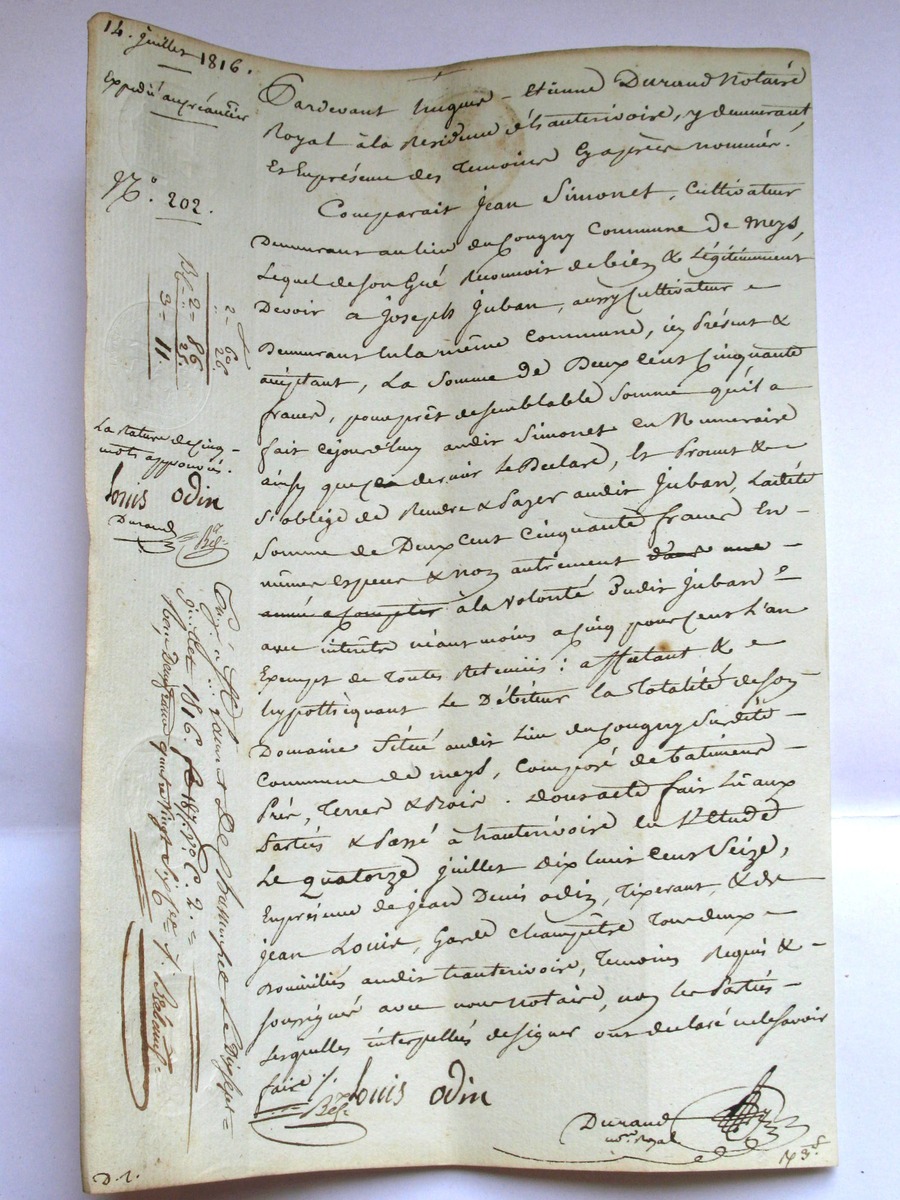 14. juillet 1816.
Expédié au créancier
N.° 202.
2 = 60
26
2 = 86
25
3 = 11.
La rature de cinq
mots approuvés.
Louis Odin
Durand
Pardevant hugues - Etienne Durand Notaire
Royal à la Residence d'hauterivoire, y demeurant
Et En présence des Temoins Cy après nommés.
Comparait Jean Simonet, Cultivateur
Demeurant au lieu du Cougny Commune de meys,
Lequel de son Gré Reconnoit de bien & Légitimement
Devoir a Joseph Juban, aussy Cultivateur
Demeurant En la même Commune, icy Présent &
acceptant, La Somme de Deux Cent Cinquante
francs, pour prêt de semblable Somme qu'il a
fait Cejourd'huy audit Simonet En Numeraire
ainsy que ce dernier Le Declare, Et Promet &
S'oblige de Rendre & Payer audit Juban, Ladite
Somme de Deux Cent Cinquante francs En
mêmes Especes & non autrement dans une
année a Compter à la volonté Dudit Juban
avec intérêts néantmoins a Cinq pour Cent L'an
Exempt de Toutes Retenües : affectant &
hypothéquant Le Débiteur La Totalité de son
Domaine Situé audit Lieu du Cougny Surdite
Commune de meys, Composé de batimens
Prés, Terres & Bois. Dont acte fait Lu aux
Parties & Passé à hauterivoire En L'Etude
Le quatorze juillet Dix huit Cent Seize,
En présence de jean Denis odin, Tixerant, & de
jean Louis, Garde Champêtre Tous deux
Domiciliés audit hauterivoire, Temoins Requis &
soussignés avec nous notaire, non Les Parties
Lesquelles interpellées de signer ont declaré ne le savoir
faire ./.
Louis Odin
Durand
no.re Royal
juillet 1816. f.° 187. v.° C. 2.
quatre vingt Six
D. r.